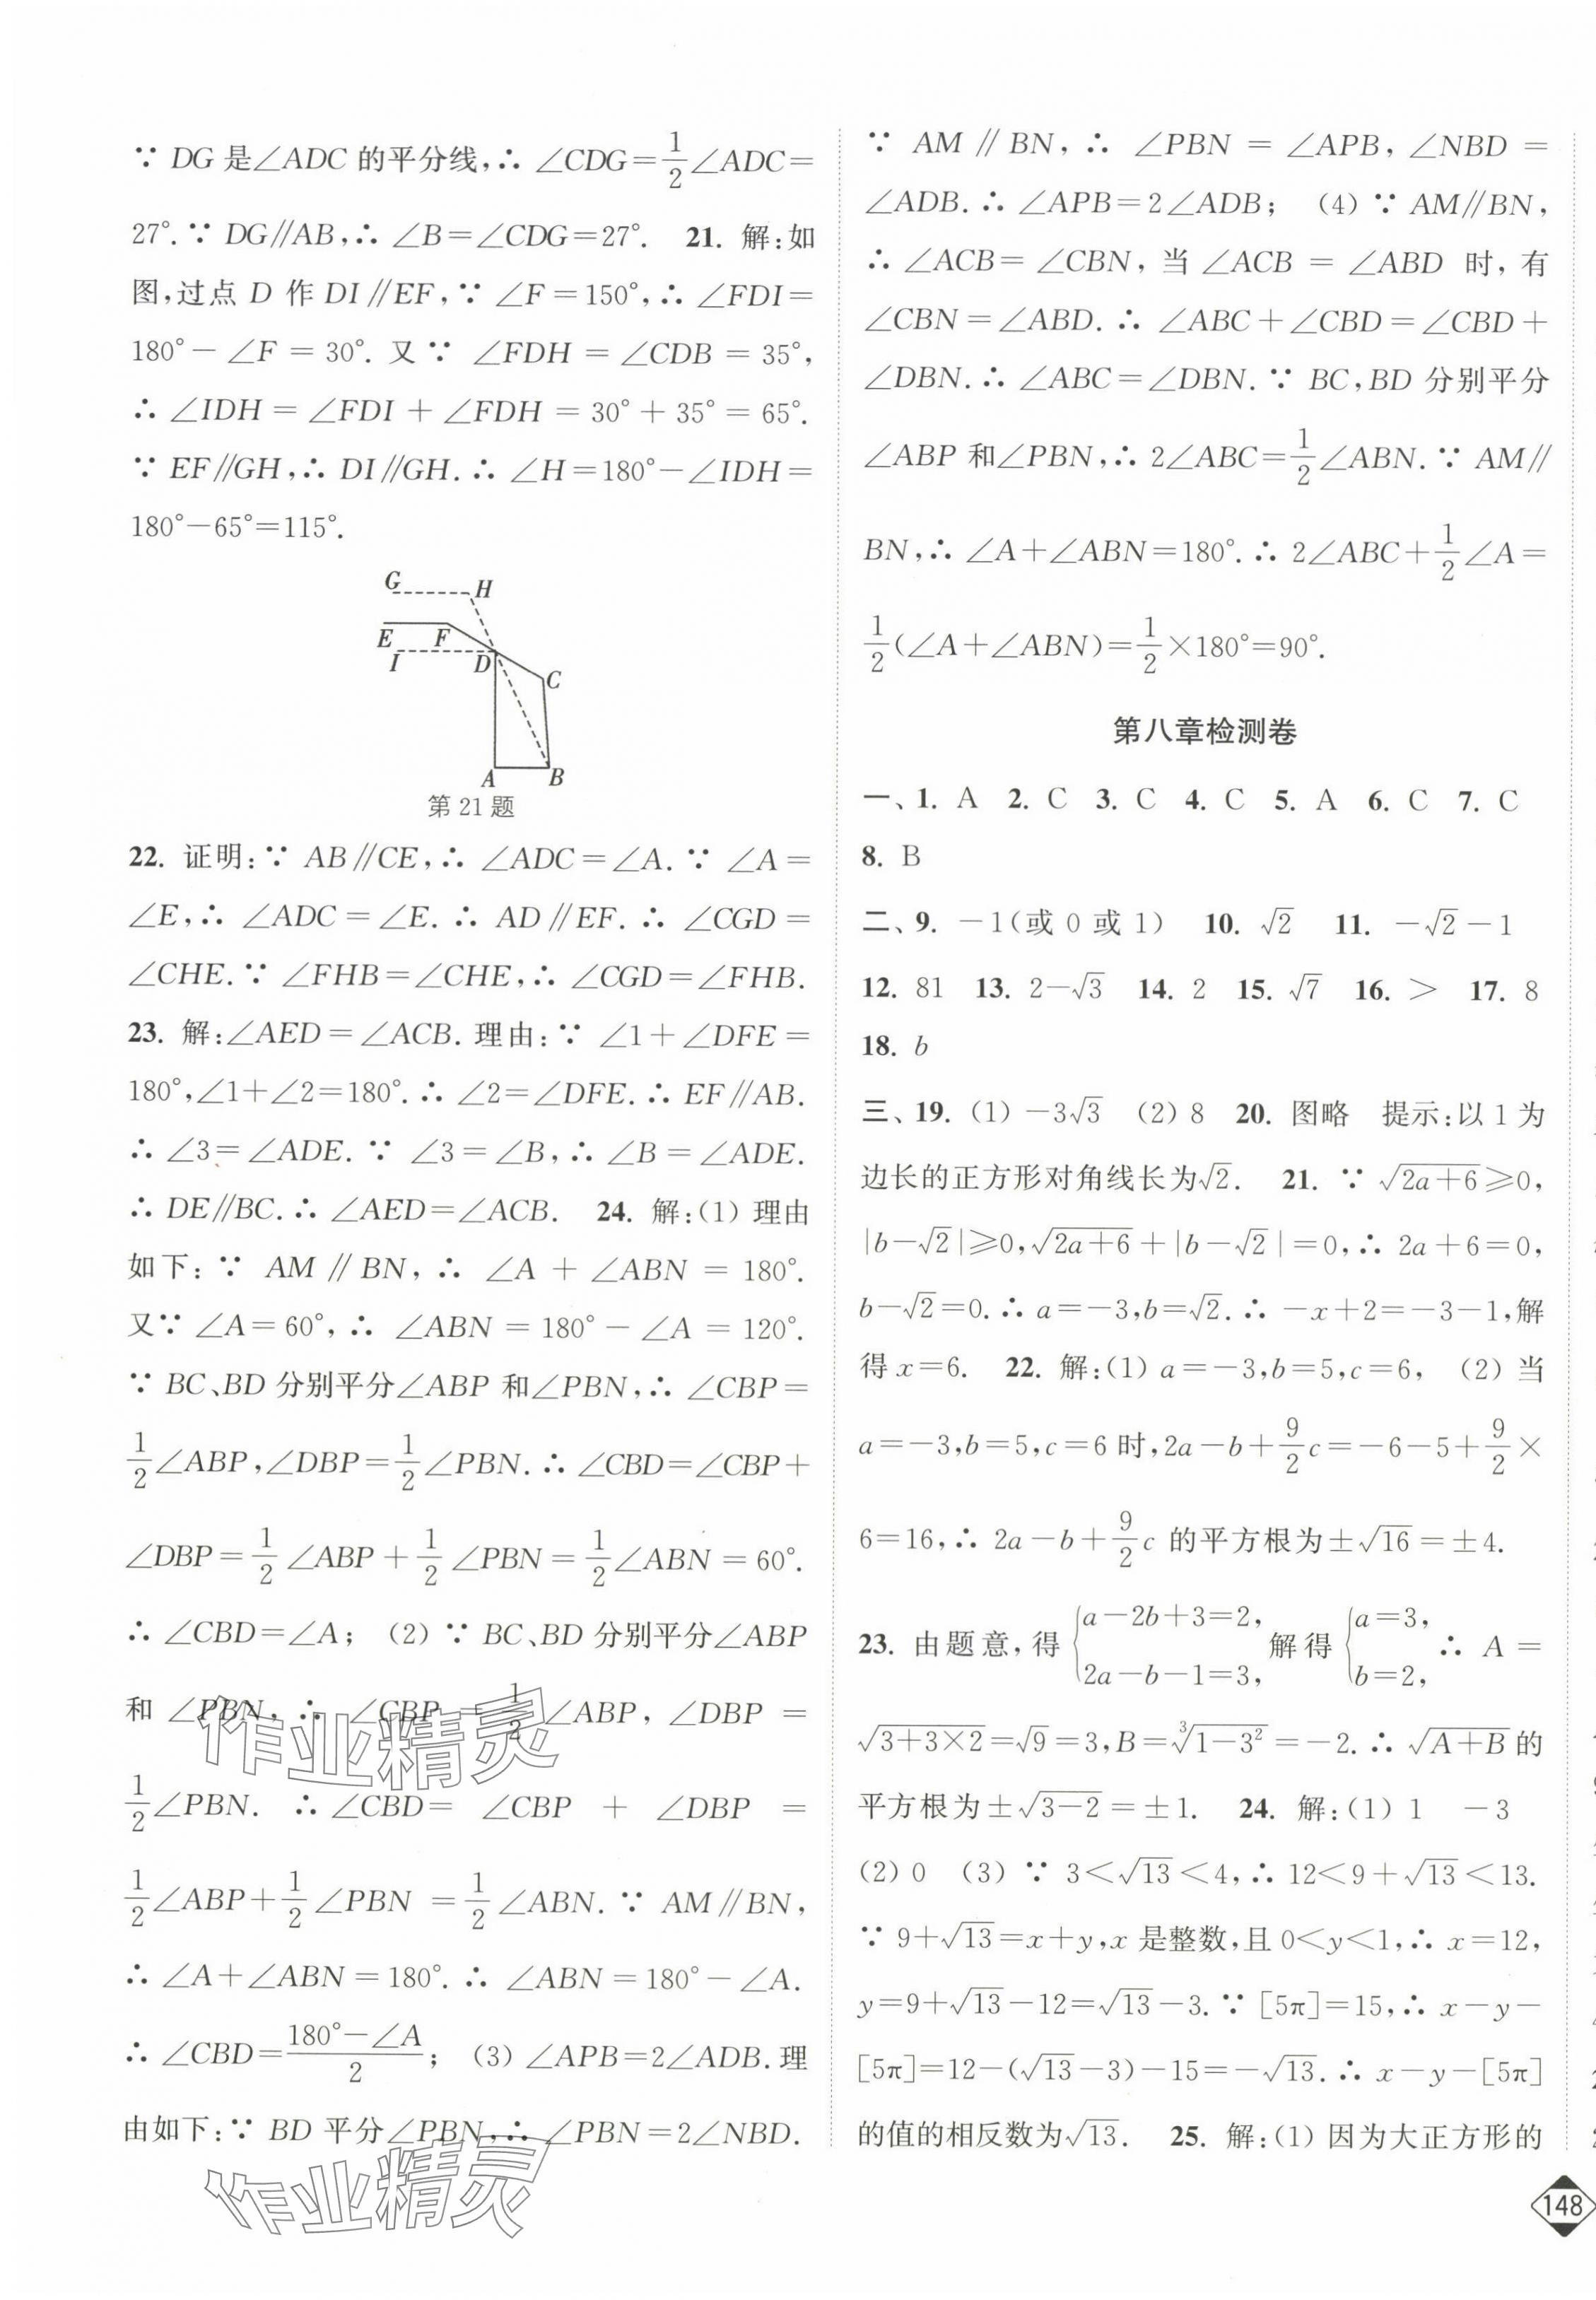 ∵ DG 是∠ADC 的平分线,∴ ∠CDG=1/2∠ADC=
27°.∵ DG∥AB,∴ ∠B=∠CDG=27°. 21. 解:如
图,过点 D 作 DI∥EF,∵ ∠F=150°,∴ ∠FDI=
180°-∠F=30°. 又∵ ∠FDH=∠CDB=35°,
∴ ∠IDH=∠FDI+∠FDH=30°+35°=65°.
∵ EF∥GH,∴ DI∥GH.∴ ∠H=180°-∠IDH=
180°-65°=115°.
G H
E F
I D
C
A B
第 21 题
22. 证明:∵ AB∥CE,∴ ∠ADC=∠A.∵ ∠A=
∠E,∴ ∠ADC=∠E.∴ AD∥EF.∴ ∠CGD=
∠CHE.∵ ∠FHB=∠CHE,∴ ∠CGD=∠FHB.
23. 解:∠AED=∠ACB.理由:∵ ∠1+∠DFE=
180°,∠1+∠2=180°.∴ ∠2=∠DFE.∴ EF∥AB.
∴ ∠3=∠ADE.∵ ∠3=∠B,∴ ∠B=∠ADE.
∴ DE∥BC.∴ ∠AED=∠ACB. 24. 解:(1) 理由
如下:∵ AM∥BN,∴ ∠A+∠ABN=180°.
又∵ ∠A=60°,∴ ∠ABN=180°-∠A=120°.
∵ BC、BD 分别平分∠ABP 和∠PBN,∴ ∠CBP=
1/2∠ABP,∠DBP=1/2∠PBN.∴ ∠CBD=∠CBP+
∠DBP=1/2∠ABP+1/2∠PBN=1/2∠ABN=60°.
∴ ∠CBD=∠A; (2) ∵ BC、BD 分别平分∠ABP
和∠PBN,∴ ∠CBP=1/2∠ABP,∠DBP=
1/2∠PBN. ∴ ∠CBD=∠CBP+∠DBP=
1/2∠ABP+1/2∠PBN=1/2∠ABN.∵ AM∥BN,
∴ ∠A+∠ABN=180°.∴ ∠ABN=180°-∠A.
∴ ∠CBD=(180°-∠A)/2; (3) ∠APB=2∠ADB.理
由如下:∵ BD 平分∠PBN,∴ ∠PBN=2∠NBD.
∵ AM∥BN,∴ ∠PBN=∠APB,∠NBD=
∠ADB.∴ ∠APB=2∠ADB; (4) ∵ AM∥BN,
∴ ∠ACB=∠CBN,当∠ACB=∠ABD 时,有
∠CBN=∠ABD.∴ ∠ABC+∠CBD=∠CBD+
∠DBN.∴ ∠ABC=∠DBN.∵ BC,BD 分别平分
∠ABP 和∠PBN,∴ 2∠ABC=1/2∠ABN.∵ AM∥
BN,∴ ∠A+∠ABN=180°.∴ 2∠ABC+1/2∠A=
1/2(∠A+∠ABN)=1/2×180°=90°.
第八章检测卷
一、1. A 2. C 3. C 4. C 5. A 6. C 7. C
8. B
二、9. -1(或 0 或 1) 10. √2 11. -√2-1
12. 81 13. 2-√3 14. 2 15. √7 16. > 17. 8
18. b
三、19. (1) -3√3 (2) 8 20. 图略 提示:以 1 为
边长的正方形对角线长为√2. 21. ∵ √(2a+6)≥0,
|b-√2|≥0,√(2a+6)+|b-√2|=0,∴ 2a+6=0,
b-√2=0.∴ a=-3,b=√2.∴ -x+2=-3-1,解
得 x=6. 22. 解:(1) a=-3,b=5,c=6, (2) 当
a=-3,b=5,c=6 时,2a-b+9/2c=-6-5+9/2×
6=16,∴ 2a-b+9/2c 的平方根为±√16=±4.
23. 由题意,得{a-2b+3=2, 2a-b-1=3, 解得{a=3, b=2, ∴ A=
√(3+3×2)=√9=3,B=∛(1-3²)=-2.∴ √(A+B)的
平方根为±√(3-2)=±1. 24. 解:(1) 1 -3
(2) 0 (3) ∵ 3<√13<4,∴ 12<9+√13<13.
∵ 9+√13=x+y,x 是整数,且 0<y<1,∴ x=12,
y=9+√13-12=√13-3.∵ [5π]=15,∴ x-y-
[5π]=12-(√13-3)-15=-√13.∴ x-y-[5π]
的值的相反数为√13. 25. 解:(1) 因为大正方形的
148
作业精灵
作业精灵